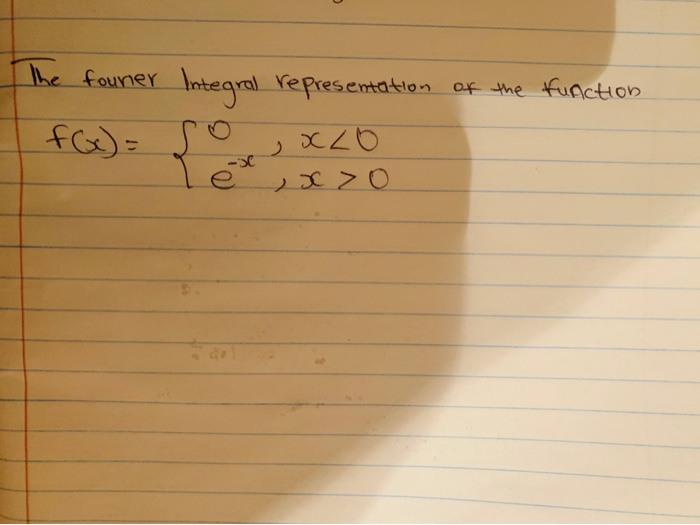 The fourier Integral representation of the function
f(x) = { 0 , x<0
e^-x , x > 0